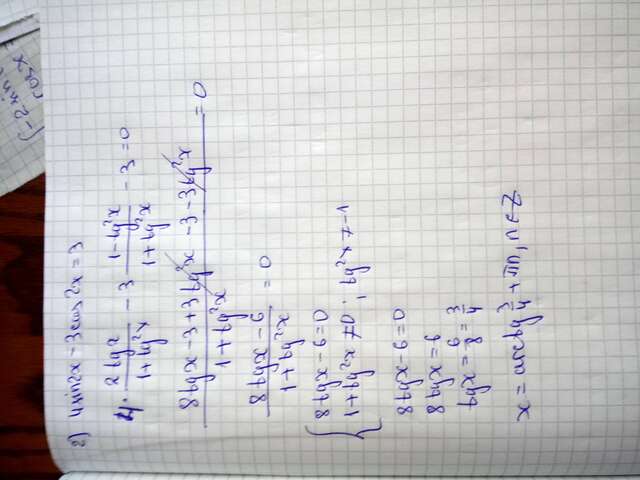 2) 4sin2x - 3cos2x = 3
4 · 2tgx/(1+tg²x) - 3 (1-tg²x)/(1+tg²x) - 3 = 0
(8tgx - 3 + 3tg²x - 3 - 3tg²x)/(1+tg²x) = 0
(8tgx - 6)/(1+tg²x) = 0
{ 8tgx - 6 = 0
1+tg²x ≠ 0; tg²x ≠ -1
8tgx - 6 = 0
8tgx = 6
tgx = 6/8 = 3/4
x = arctg 3/4 + πn, n∈Z
(-2sin
cosx